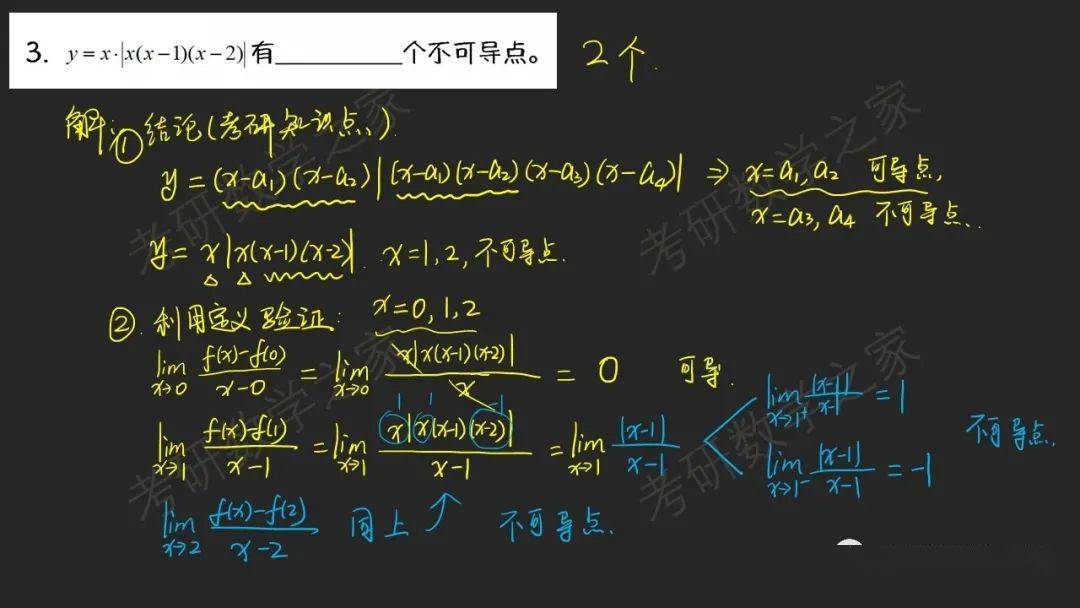 3. y = x·|x(x−1)(x−2)| 有__________个不可导点。 2个.
解: ① 结论(考研知识点、).
y = (x-a₁)(x-a₂)|(x-a₁)(x-a₂)(x-a₃)(x-a₄)| ⇒ x=a₁,a₂ 可导点,
x=a₃,a₄ 不可导点.
y = x|x(x-1)(x-2)|. x=1,2,不可导点.
②. 利用定义验证: x=0,1,2
lim x→0 (f(x)-f(0))/(x-0) = lim x→0 x|x(x-1)(x-2)|/x = 0 可导.
lim x→1 (f(x)-f(1))/(x-1) = lim x→1 x|x(x-1)(x-2)|/(x-1) = lim x→1 |x-1|/(x-1)
1 1 -1
lim x→1⁺ |x-1|/(x-1) = 1
lim x→1⁻ |x-1|/(x-1) = -1
不可导点.
lim x→2 (f(x)-f(2))/(x-2) 同上 不可导点.
考研数学之家
考研数学之家
考研数学之家
考研数学之家